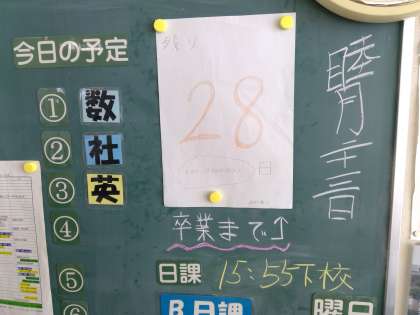 今日の予定
① 数
② 社
③ 英
④
⑤
⑥
残り
28
日
卒業まで↑
日課 15:55下校
B日課
曜日
睦月
主
音